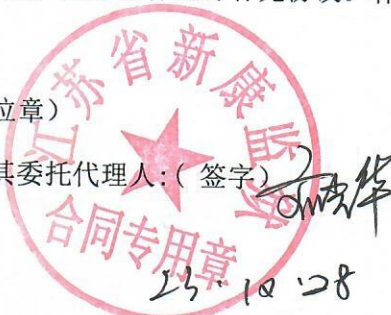 位章）
其委托代理人：（ 签字）
江苏省新康监狱
合同专用章
23. 10. 28